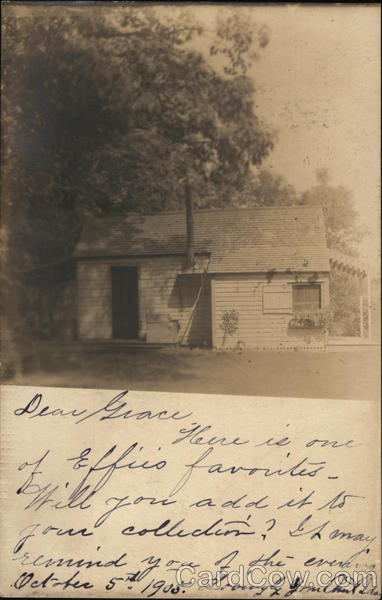 Dear Grace
Here is one
of Effies favorites -
Will you add it to
your collection? It may
remind you of the evening
October 5th 1905.
CardCow.com